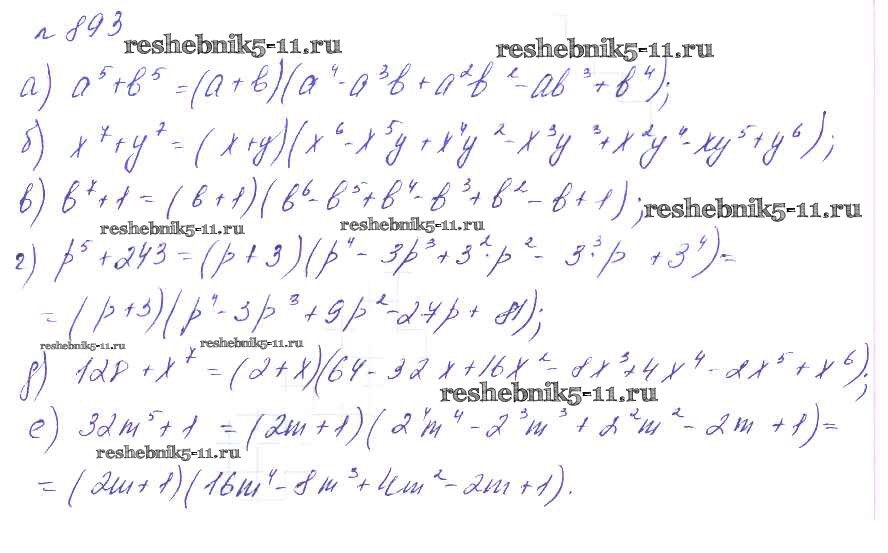 № 893
reshebnik5-11.ru reshebnik5-11.ru
а) a⁵+b⁵ = (a+b)(a⁴-a³b+a²b²-ab³+b⁴);
б) x⁷+y⁷ = (x+y)(x⁶-x⁵y+x⁴y²-x³y³+x²y⁴-xy⁵+y⁶);
в) b⁷+1 = (b+1)(b⁶-b⁵+b⁴-b³+b²-b+1);
reshebnik5-11.ru
reshebnik5-11.ru reshebnik5-11.ru
г) p⁵+243 = (p+3)(p⁴-3p³+3²·p²-3³·p+3⁴)=
=(p+3)(p⁴-3p³+9p²-27p+81);
reshebnik5-11.ru reshebnik5-11.ru
д) 128+x⁷ = (2+x)(64-32x+16x²-8x³+4x⁴-2x⁵+x⁶);
reshebnik5-11.ru
е) 32m⁵+1 = (2m+1)(2⁴m⁴-2³m³+2²m²-2m+1)=
reshebnik5-11.ru
=(2m+1)(16m⁴-8m³+4m²-2m+1).